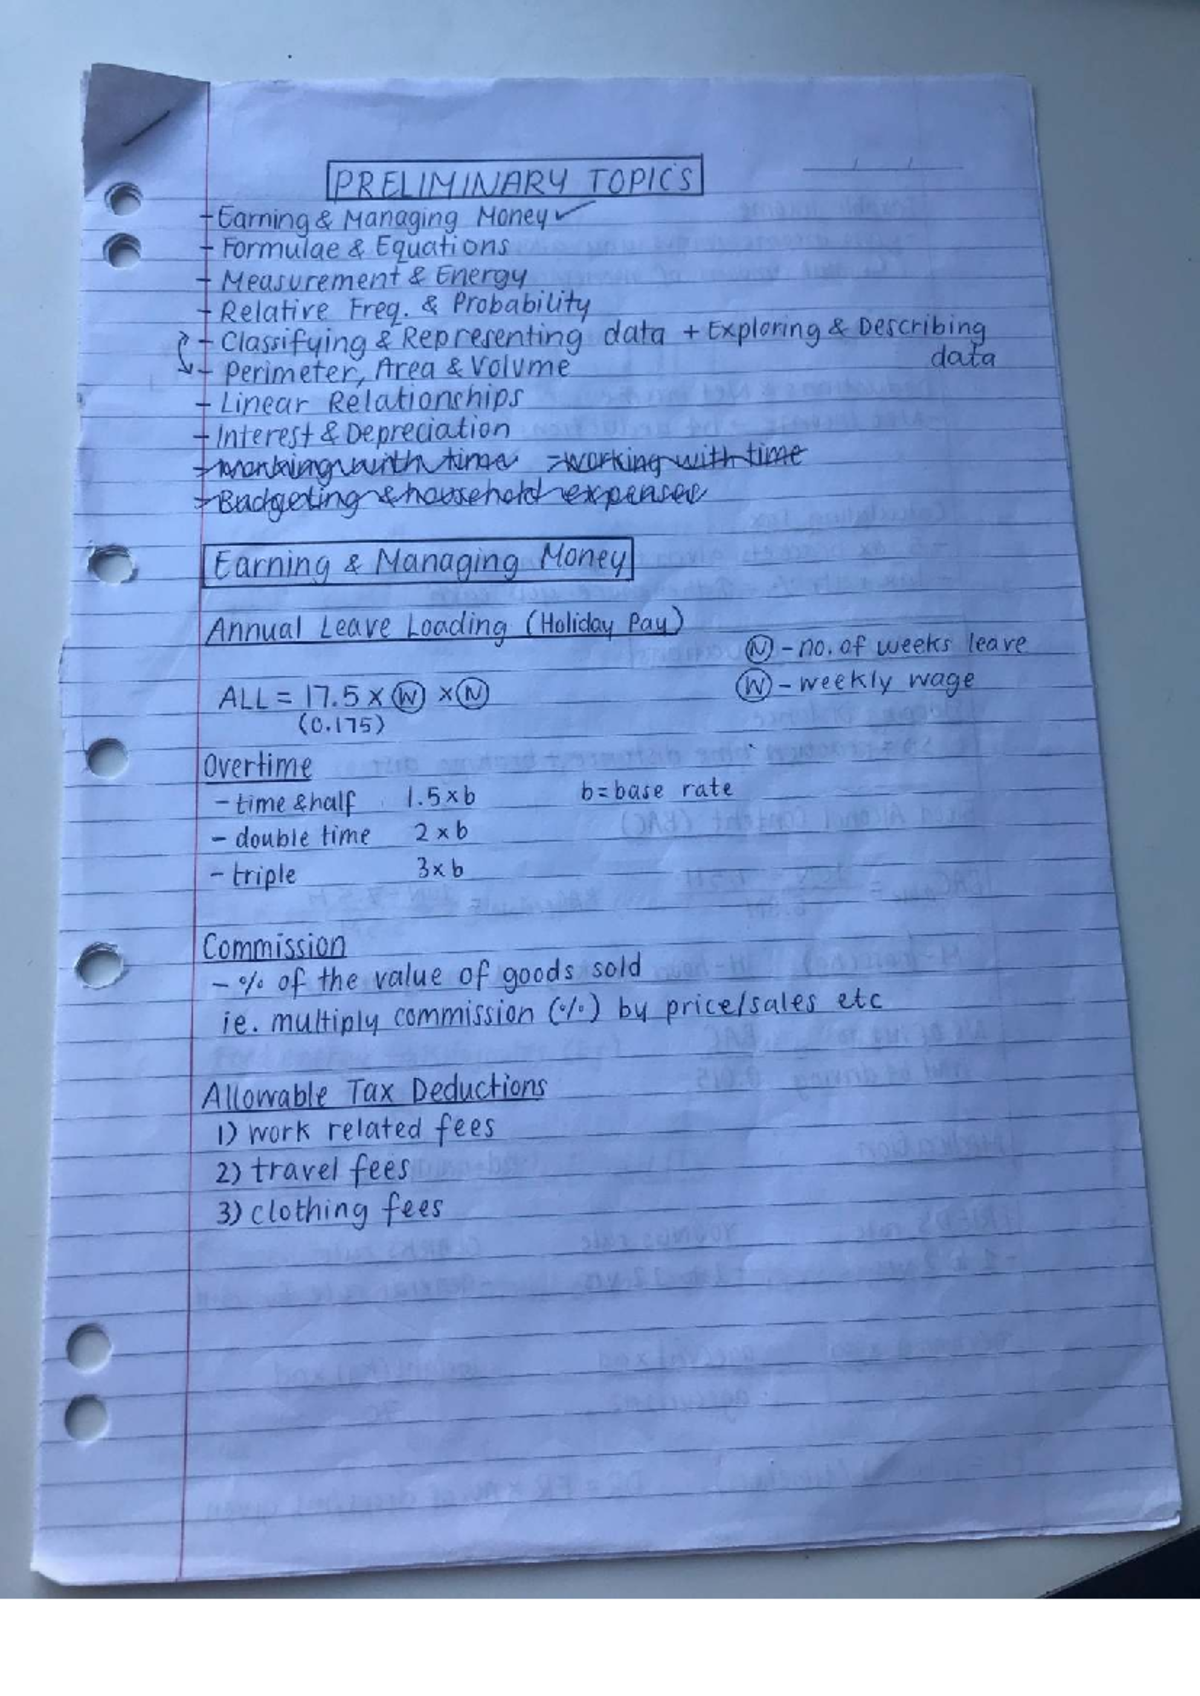 PRELIMINARY TOPICS
- Earning & Managing Money ✓
- Formulae & Equations
- Measurement & Energy
- Relative Freq. & Probability
- Classifying & Representing data + Exploring & Describing
data
- Perimeter, Area & Volume
- Linear Relationships
- Interest & Depreciation
- Working with time - working with time
- Budgeting & household expenses
Earning & Managing Money
Annual Leave Loading (Holiday Pay)
N - no. of weeks leave
W - weekly wage
ALL = 17.5 × W × N
(0.175)
Overtime
- time & half 1.5×b b=base rate
- double time 2×b
- triple 3×b
Commission
- % of the value of goods sold
ie. multiply commission (%) by price/sales etc
Allowable Tax Deductions
1) work related fees
2) travel fees
3) clothing fees